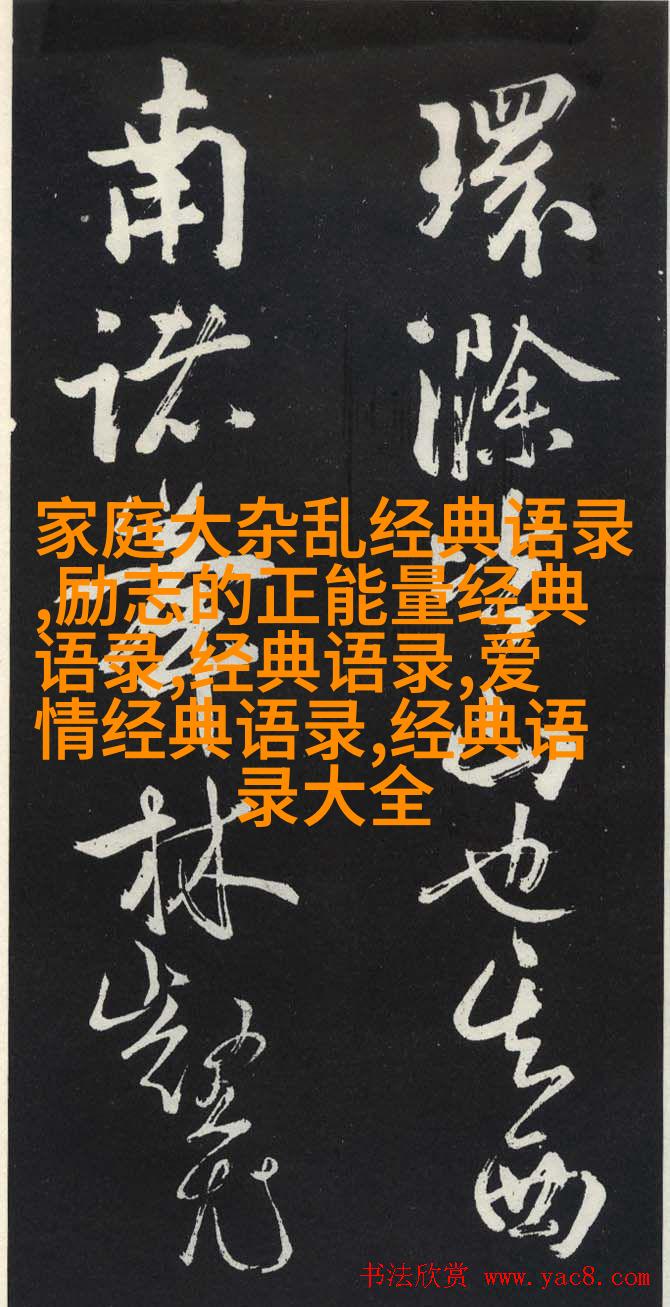 環滁皆山也其西
南諸峯林壑尤
家庭大杂乱经典语录
,励志的正能量经典
语录,经典语录,爱
情经典语录,经典语
录大全
书法欣赏 www.yac8.com